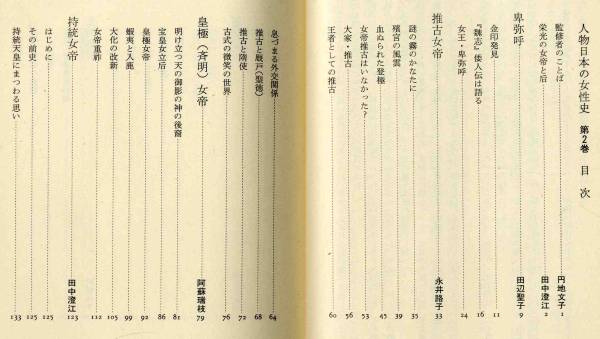 人物日本の女性史 第2巻 目次
監修者のことば 円地文子 1
栄光の女帝と后 田中澄江 2
卑弥呼 田辺聖子 9
金印発見 11
『魏志』倭人伝は語る 16
女王・卑弥呼 24
推古女帝 永井路子 33
謎の霧のかなたに 35
殯宮の風雲 39
血ぬられた登極 45
女帝推古はいなかった? 53
大家・推古 56
王者としての推古 60
息づまる外交関係 64
推古と厩戸(聖徳) 68
推古と隋使 72
古式の微笑の世界 76
皇極(斉明)女帝 阿蘇瑞枝 79
明け立つ天の御影の神の後裔 81
宝皇女立后 86
皇極女帝 92
蝦夷と入鹿 99
大化の改新 105
女帝重祚 112
持統女帝 田中澄江 123
はじめに 125
その前史 125
持統天皇にまつわる思い 133